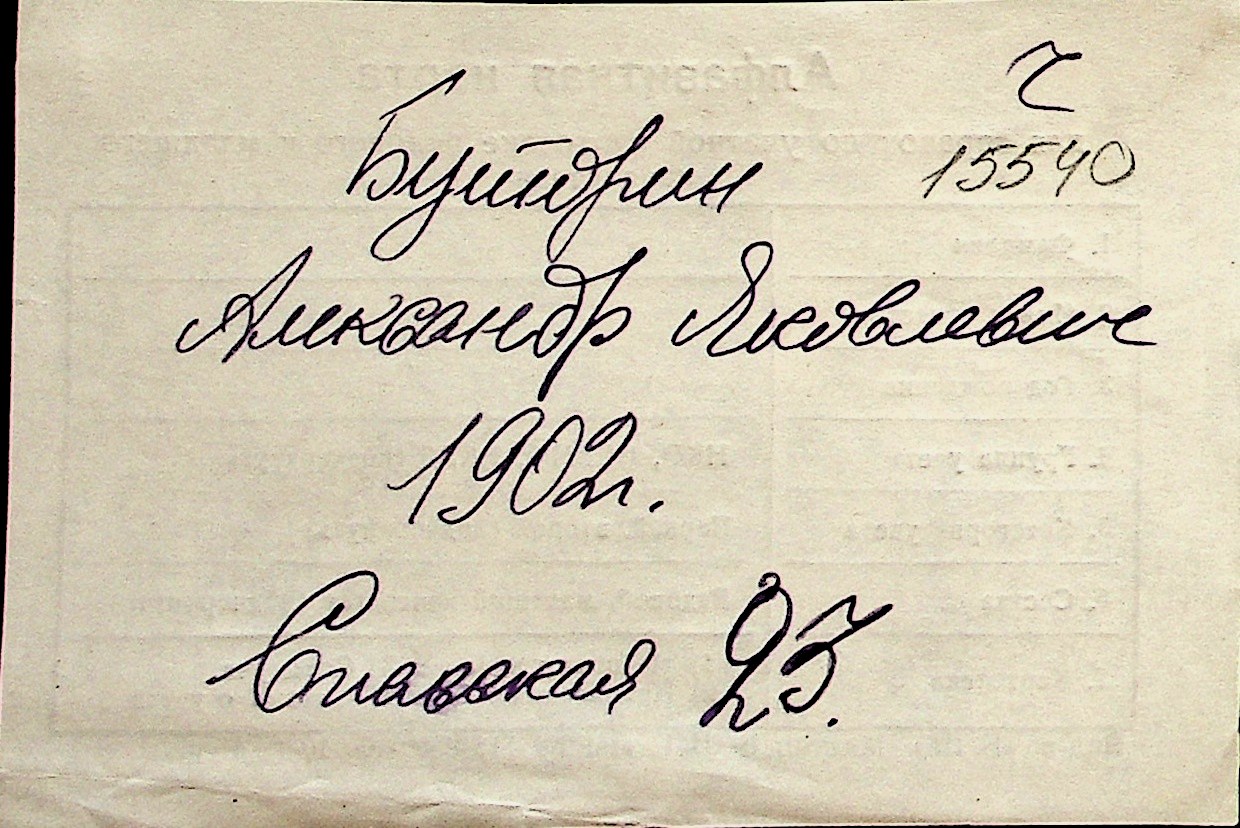 15540
Буторин
Александр Яковлевич
1902 г.
Спасская 23.